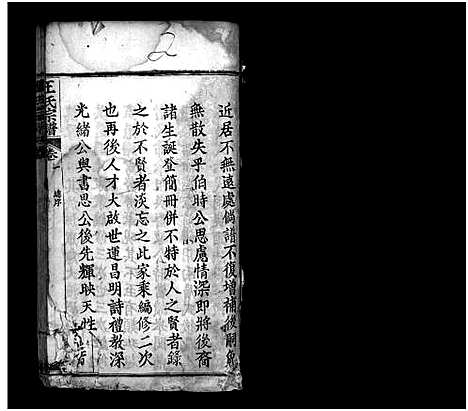 近居不無遠處倘譜不復增補後嗣免
無散失乎伯時公思慮情深即將後裔
諸生誕登簡冊併不特於人之賢者錄
之於不賢者淡忘之此家乘編修二次
也再後人才大啟世運昌明詩禮教深
光緒公與書思公後先輝映天性
王氏宗譜
卷一